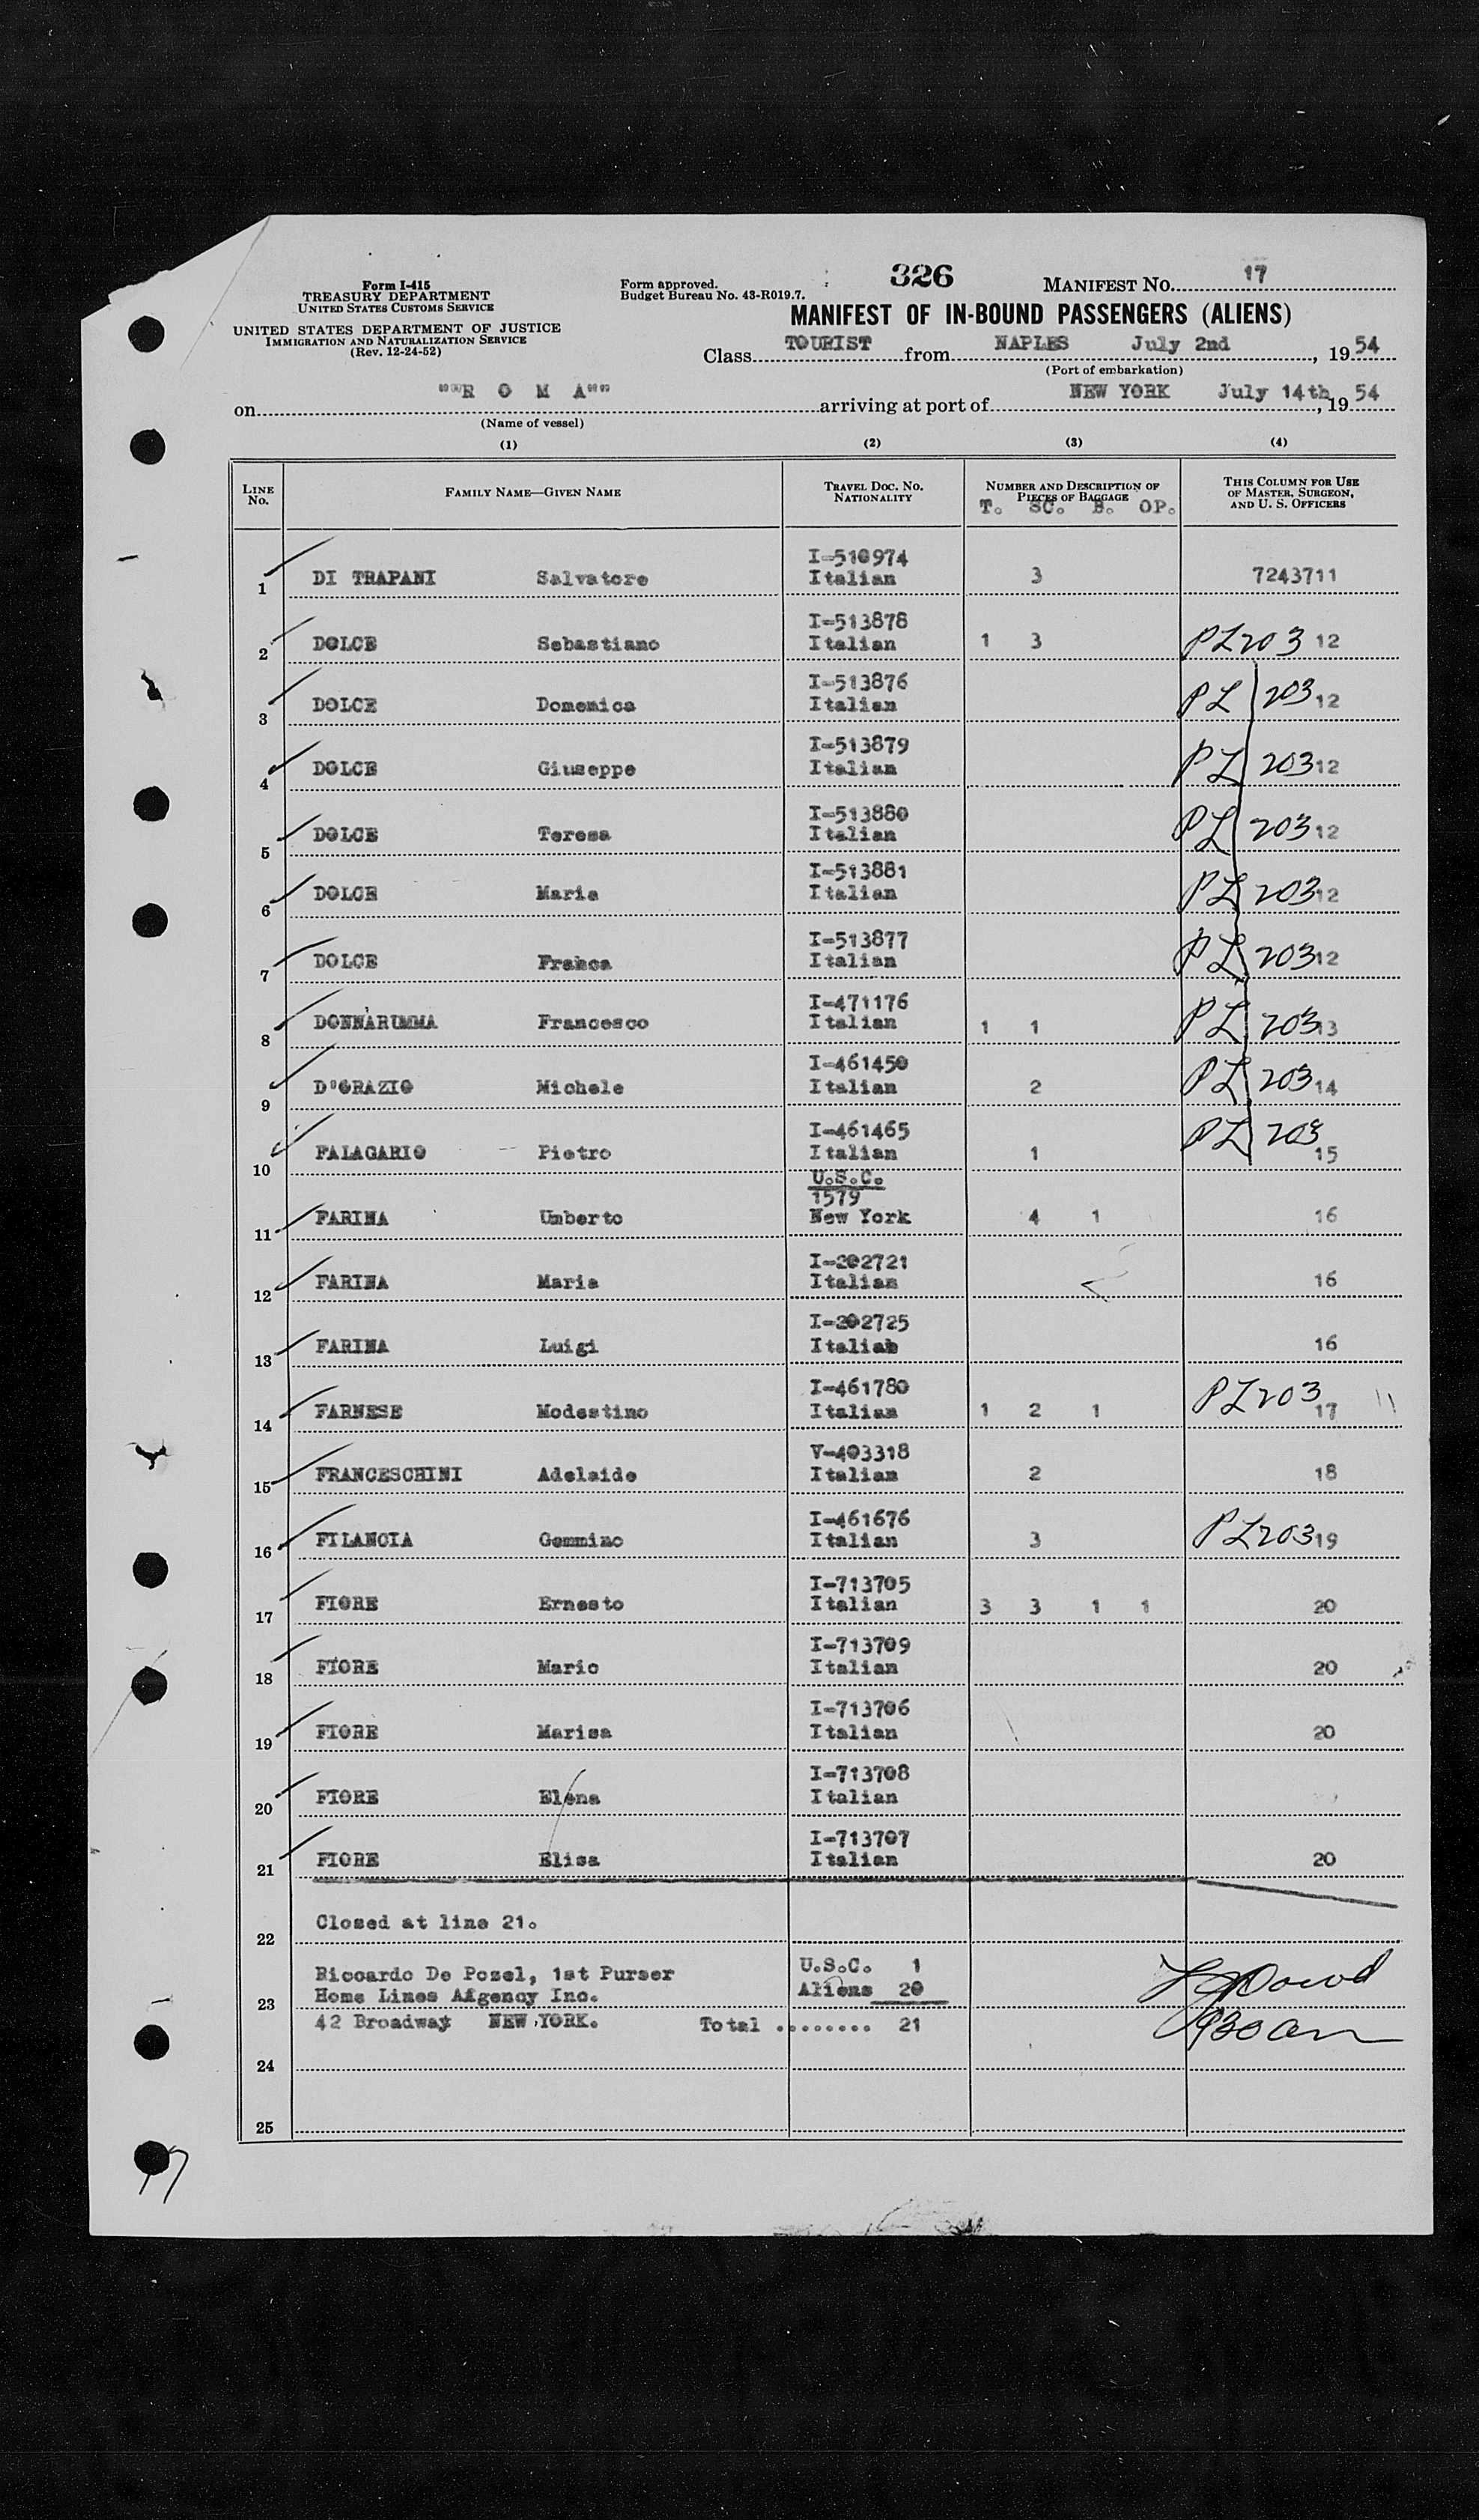 Form I-415
TREASURY DEPARTMENT
UNITED STATES CUSTOMS SERVICE
UNITED STATES DEPARTMENT OF JUSTICE
IMMIGRATION AND NATURALIZATION SERVICE
(Rev. 12-24-52)
Form approved.
Budget Bureau No. 43-R019.7.
326
MANIFEST No. 17
MANIFEST OF IN-BOUND PASSENGERS (ALIENS)
Class TOURIST from NAPLES July 2nd, 19 54
(Port of embarkation)
on ""R O M A"" arriving at port of NEW YORK July 14th, 19 54
(Name of vessel)
(1) (2) (3) (4)
LINE No. FAMILY NAME—GIVEN NAME TRAVEL DOC. NO. NATIONALITY NUMBER AND DESCRIPTION OF PIECES OF BAGGAGE THIS COLUMN FOR USE OF MASTER, SURGEON, AND U. S. OFFICERS
T. SC. B. OP.
I-510974
1 DI TRAPANI Salvatore Italian 3 7243711
I-513878
2 DOLCE Sebastiano Italian 1 3 PL203 12
I-513876
3 DOLCE Domenica Italian PL 203 12
I-513879
4 DOLCE Giuseppe Italian PL 203 12
I-513880
5 DOLCE Teresa Italian PL 203 12
I-513881
6 DOLCE Maria Italian PL 203 12
I-513877
7 DOLCE Franca Italian PL 203 12
I-471176
8 DONNARUMMA Francesco Italian 1 1 PL 203 13
I-461450
9 D'ORAZIO Michele Italian 2 PL 203 14
I-461465
10 FALAGARIO Pietro Italian 1 PL 203 15
U.S.C.
1579
11 FARINA Umberto New York 4 1 16
I-202721
12 FARINA Maria Italian 16
I-202725
13 FARINA Luigi Italiab 16
I-461780
14 FARNESE Modestino Italian 1 2 1 PL203 17
V-403318
15 FRANCESCHINI Adelaide Italian 2 18
I-461676
16 FILANCIA Gemmino Italian 3 PL203 19
I-713705
17 FIORE Ernesto Italian 3 3 1 1 20
I-713709
18 FIORE Mario Italian 20
I-713706
19 FIORE Marisa Italian 20
I-713708
20 FIORE Elena Italian
I-713707
21 FIORE Elisa Italian 20
22 Closed at line 21.
Riccardo De Pozel, 1st Purser U.S.C. 1
23 Home Lines Agency Inc. Aliens 20
42 Broadway NEW YORK. Total ........ 21 930 am
24
25
17